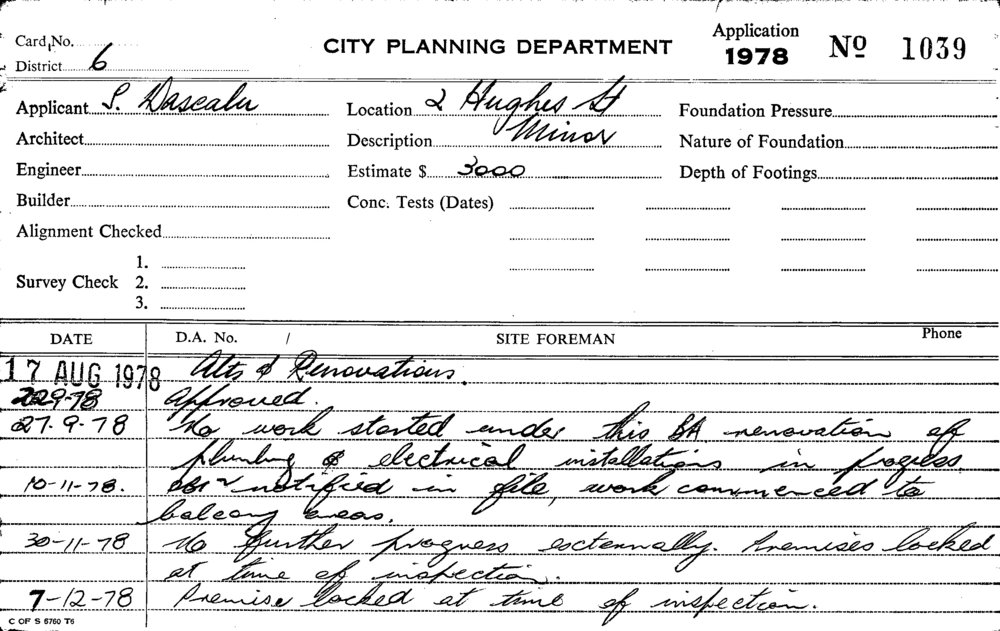 Card No.
District 6
CITY PLANNING DEPARTMENT
Application
1978
No 1039
Applicant S. Dascalu
Location 2 Hughes St
Foundation Pressure
Architect
Description Minor
Nature of Foundation
Engineer
Estimate $ 3000
Depth of Footings
Builder
Conc. Tests (Dates)
Alignment Checked
Survey Check
1.
2.
3.
DATE
D.A. No. /
SITE FOREMAN
Phone
17 AUG 1978 Alts & Renovations.
9-78 Approved.
27.9.78 No work started under this BA renovation of
plumbing & electrical installations in progress.
10-11-78. notified in file, work commenced to
balcony areas.
30-11-78 No further progress externally. Premises locked
at time of inspection.
7-12-78 Premise locked at time of inspection.
C OF S 6760 T6